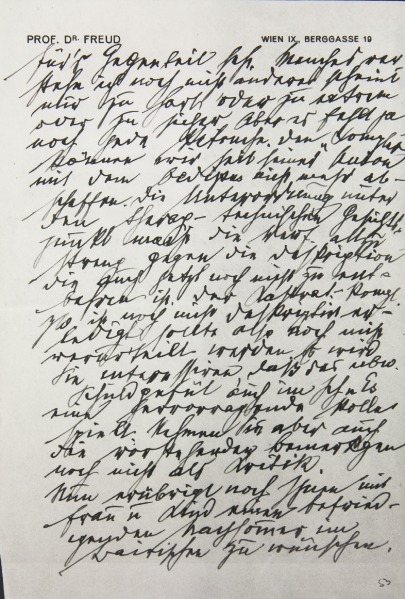 PROF. DR. FREUD WIEN IX., BERGGASSE 19
für's Gegenteil
stehe ich noch nicht, anderes scheint
mir zu oder zu extrem
oder zu sicher. Aber es fehlt ja
noch jede Retouche. Den „Komplex"
können wir seit seinem
mit dem nicht mehr ab-
schaffen. Die Unterordnung unter
den therap- technischen Gesichts-
punkt macht die
streng gegen die Deskription
die jetzt noch nicht zu ent-
behren ist. Der Kastrat. Kompl.
ist noch nicht deskriptiv er-
ledigt sollte also noch nicht
verurteilt werden. Es wird
Sie interessieren daß das ubw.
Schuldgefühl auch im
eine hervorragende Rolle
spielt. Nehmen Sie aber auch
die vorstehenden Bemerkgen
noch nicht als Kritik.
Nun erübrigt noch Ihnen mit
Frau u Kind einen befried-
igenden Nachsommer im
Bairischen zu wünschen.
53